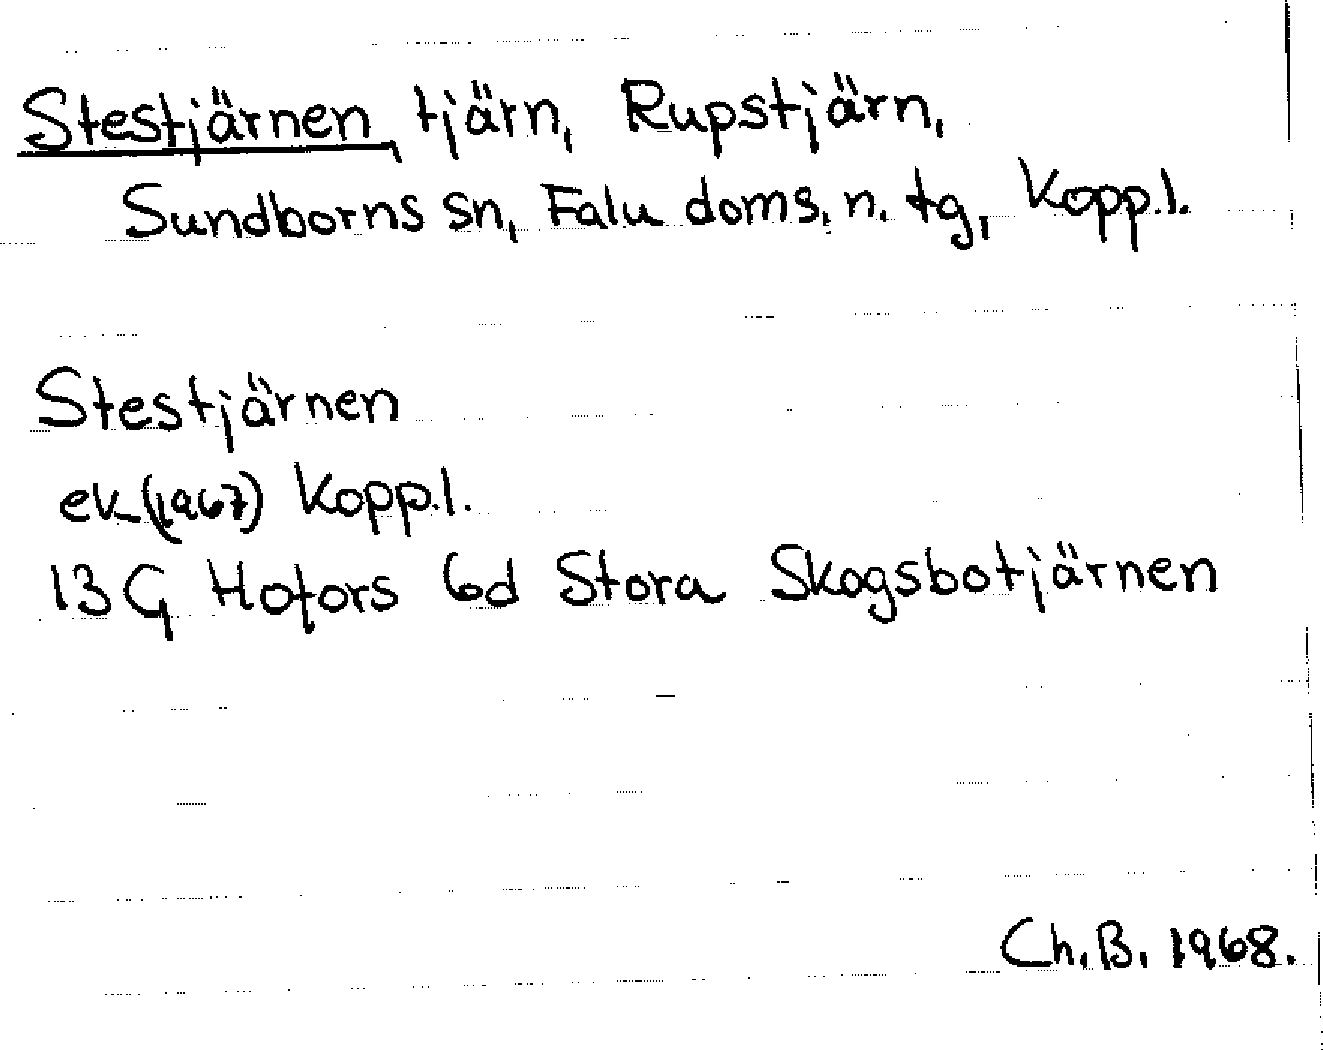 Stestjärnen, tjärn, Rupstjärn,
Sundborns sn, Falu doms. n. tg, Kopp.l.
Stestjärnen
ek (1967) Kopp.l.
13 G Hofors 6d Stora Skogsbotjärnen
Ch.B. 1968.